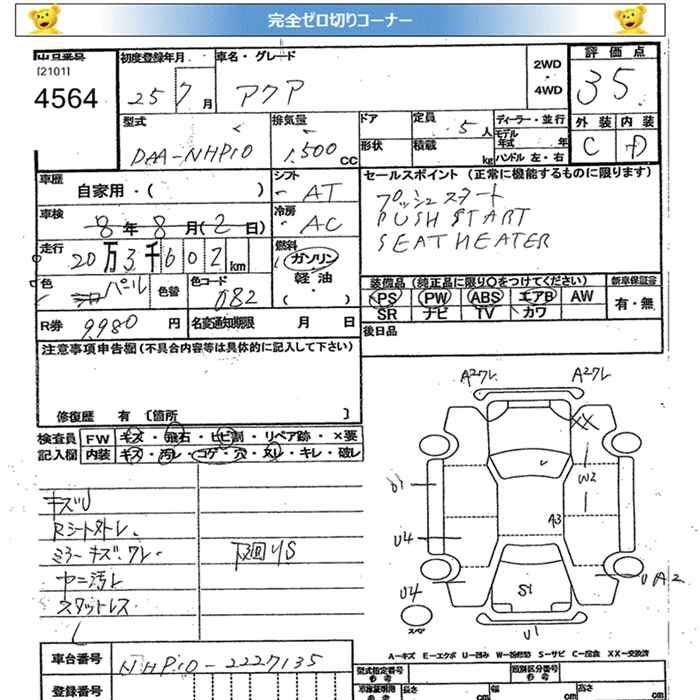 完全ゼロ切りコーナー
出品番号 初度登録年月 車名・グレード 2WD・4WD 評価点
[2101]
4564 25 7月 アクア 35
型式 DAA-NHP10 排気量 1,500cc ドア 定員 5人 ディーラー・並行 外装 内装
形状 積載 kg モデル年式 年 C D
ハンドル 左・右
車歴 自家用・( ) シフト AT セールスポイント(正常に機能するものに限ります)
車検 8年8月(2日) 冷房 AC プッシュスタート
PUSH START
走行 20万3千602km 燃料 ガソリン・軽油・( ) SEAT HEATER
色 パール 色替 色コード 082 装備品(純正品に限り○をつけてください) 新車保証書
PS PW ABS エアB AW 有・無
SR ナビ TV カワ
R券 9980円 名変通知期限 月 日 後日品
注意事項申告欄(不具合内容等は具体的に記入して下さい)
修復歴 有 〔箇所 〕
検査員 FW キズ・飛石・ヒビ割・リペア跡・×要
記入欄 内装 キズ・汚レ・コゲ・穴・スレ・キレ・破レ
キズU
Rシート外レ
ミラーキズ.ワレ 下廻りS
ヤニ汚レ
スタットレス
A2ワレ A2ワレ
XX
W2
A3
U4
U4 UA2
S1
U1
スペア
A-キズ E-エクボ U-凹み W-補修跡 S-サビ C-腐食 XX-交換済
車台番号 NHP10-2227135 型式指定番号 参考 類別区分番号 参考
登録番号 車庫証明用 参考 長さ cm 幅 cm 高さ cm